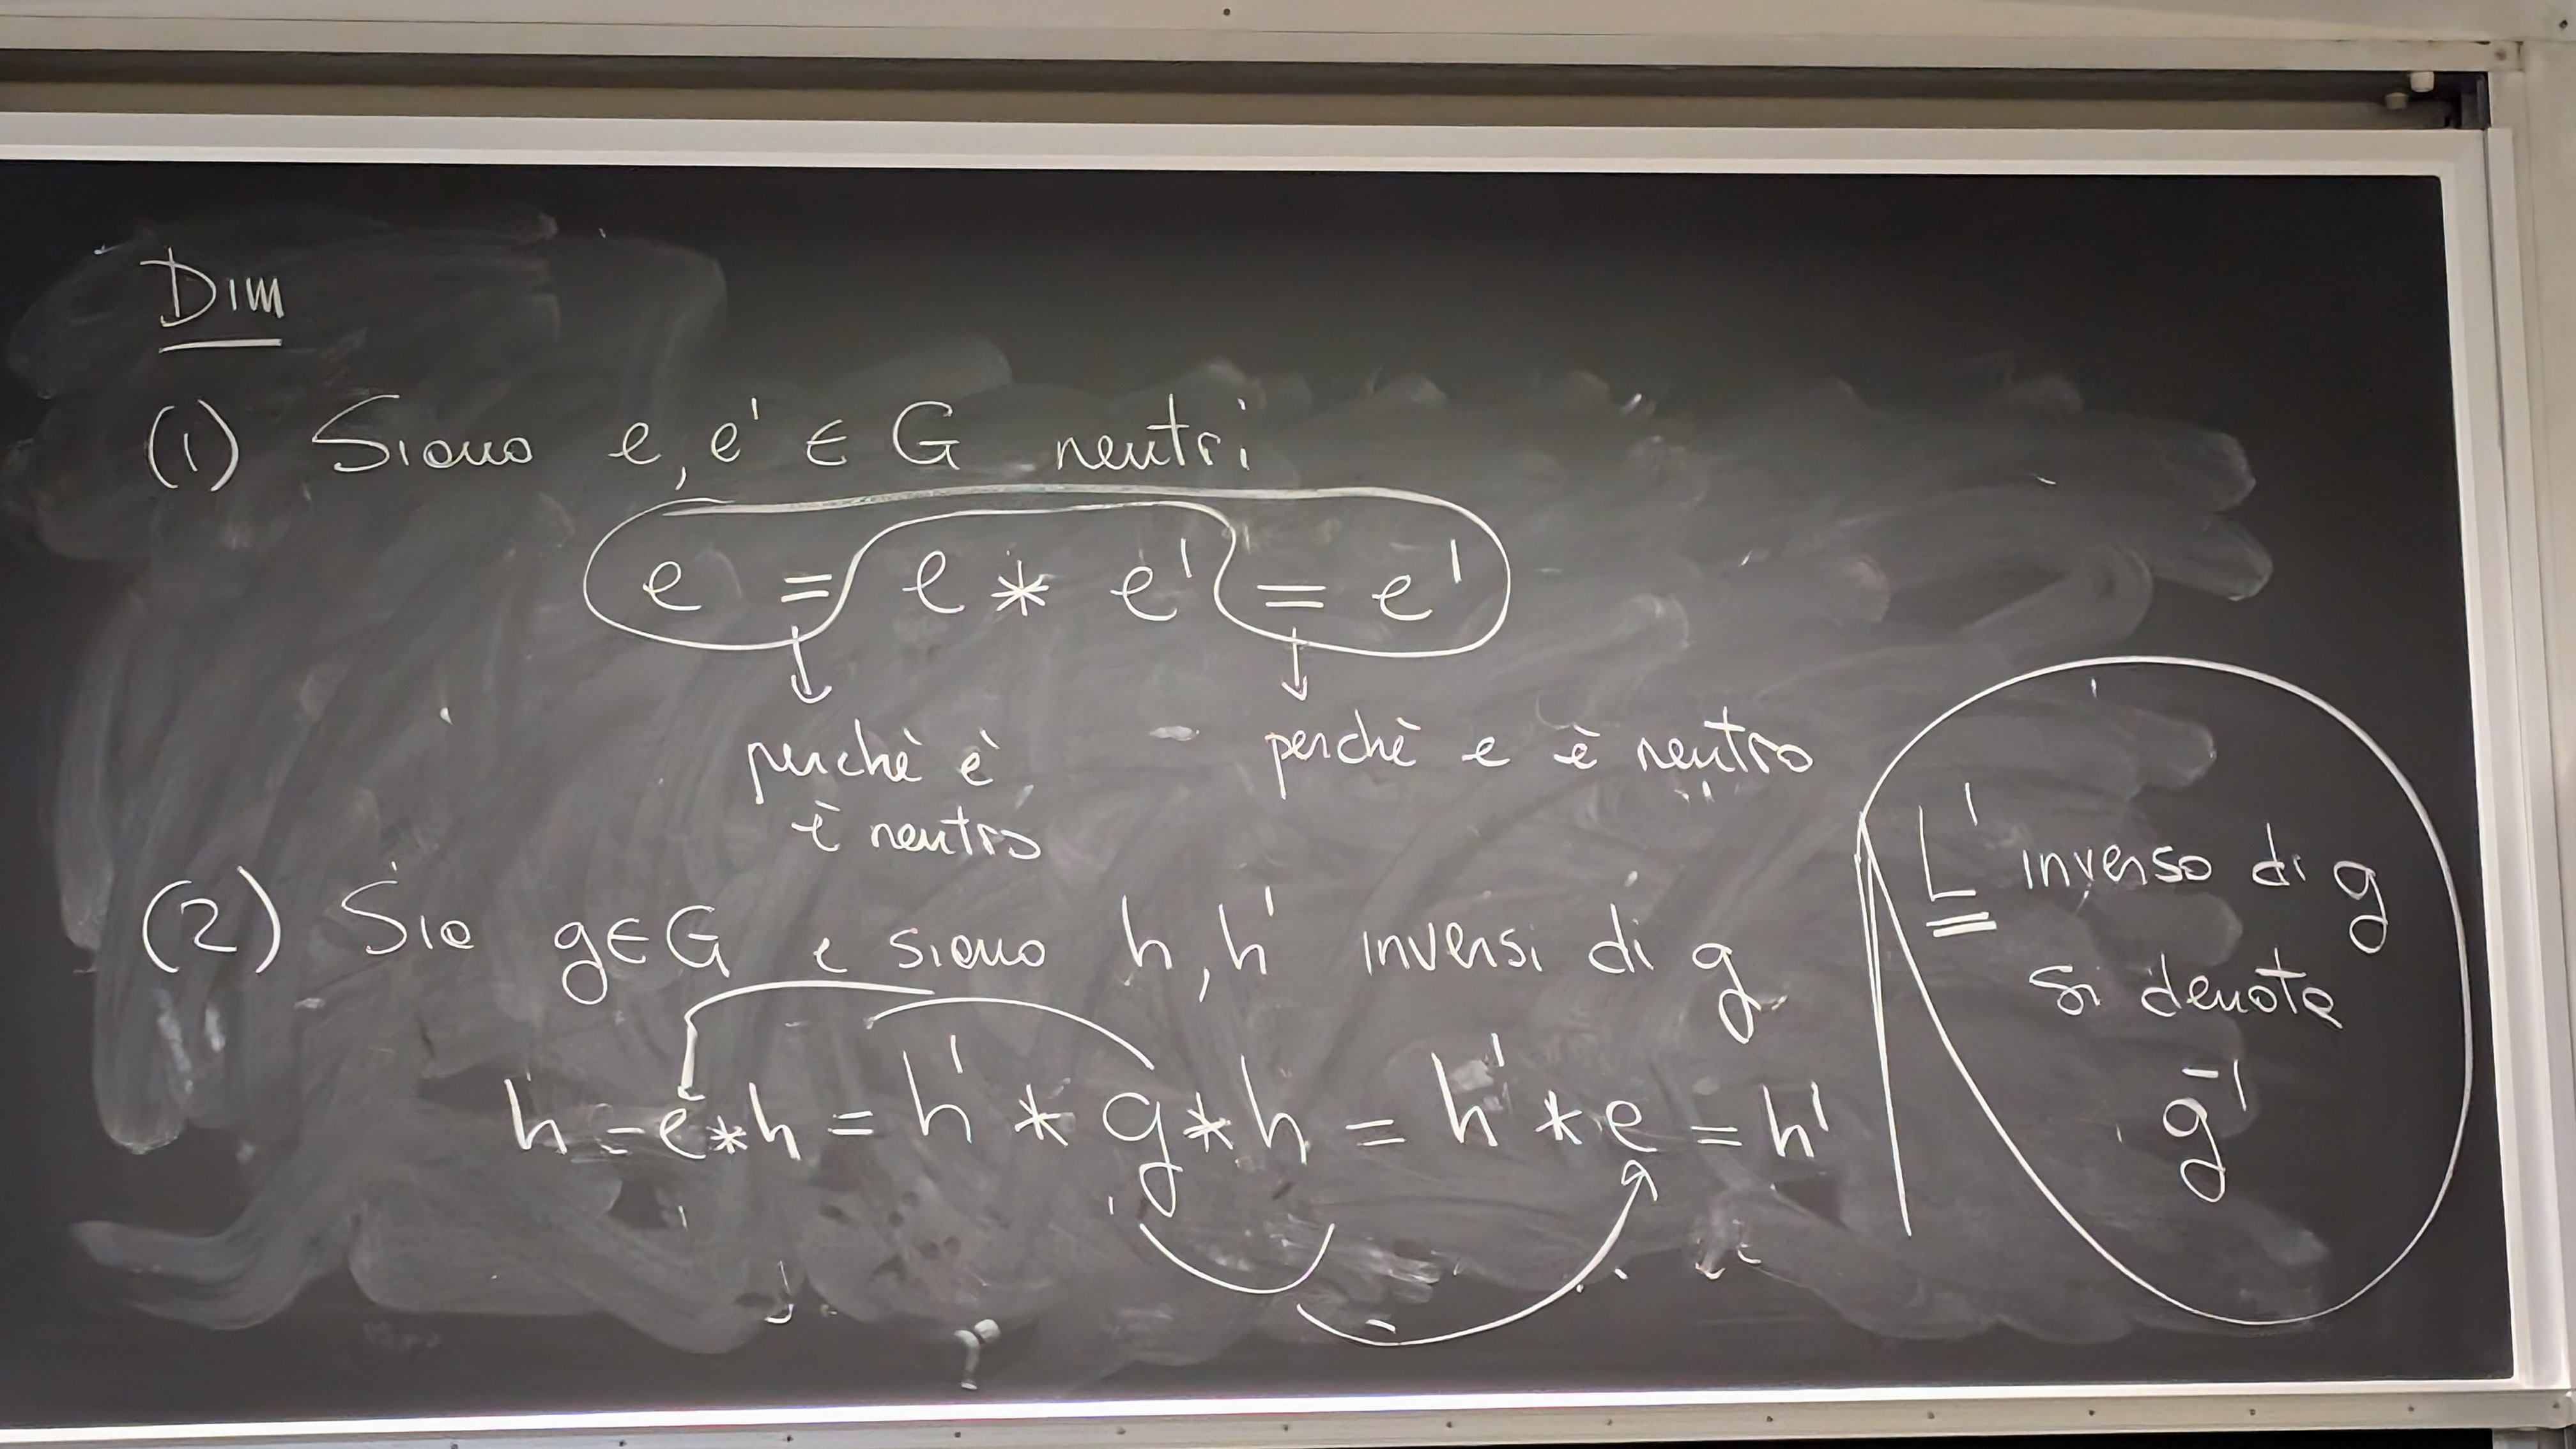 Dim
(1) Siano e, e' ∈ G neutri
e = e * e' = e'
perchè e'
è neutro
perchè e è neutro
(2) Sia g∈G e siano h, h' inversi di g
h = e*h = h' * g*h = h' * e = h'
L' inverso di g
si denota
g⁻¹